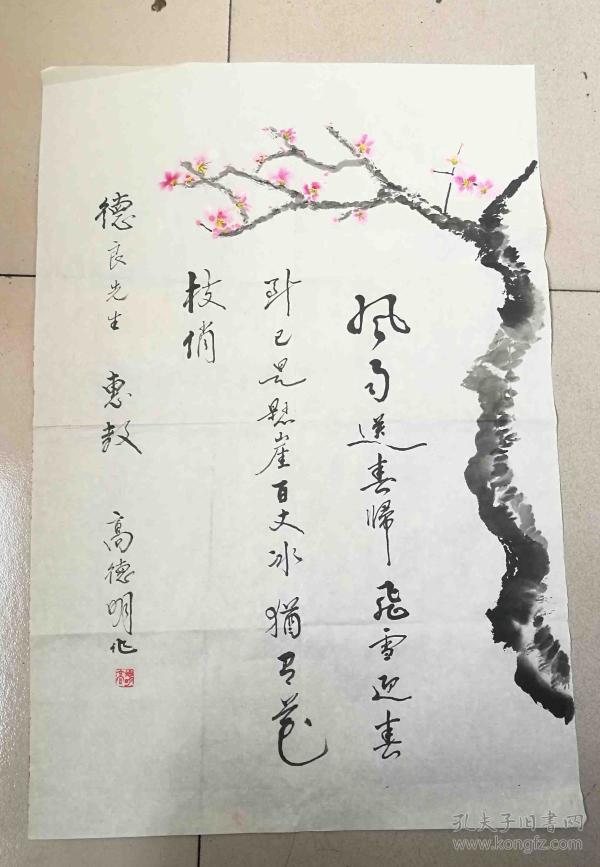 风雨送春归飛雪迎春
到已是悬崖百丈冰猶有花
枝俏
德良先生 惠教 高德明作
孔夫子旧书网
www.kongfz.com